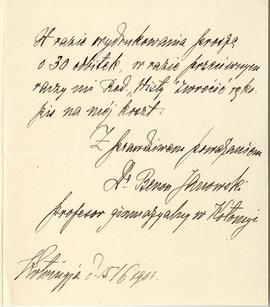 W razie wydrukowania proszę
o 30 odbitek, w razie przeciwnym
raczy mi Red. "Wisły" zwrócić rękopis na mój koszt.
Z prawdziwem poważaniem
Dr Benon Janowski
profesor gimnazyalny w Kołomyi
Kołomyja d. 15/6 1901.